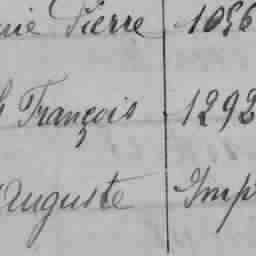 Pierre 1056
François 1292
Auguste Imp